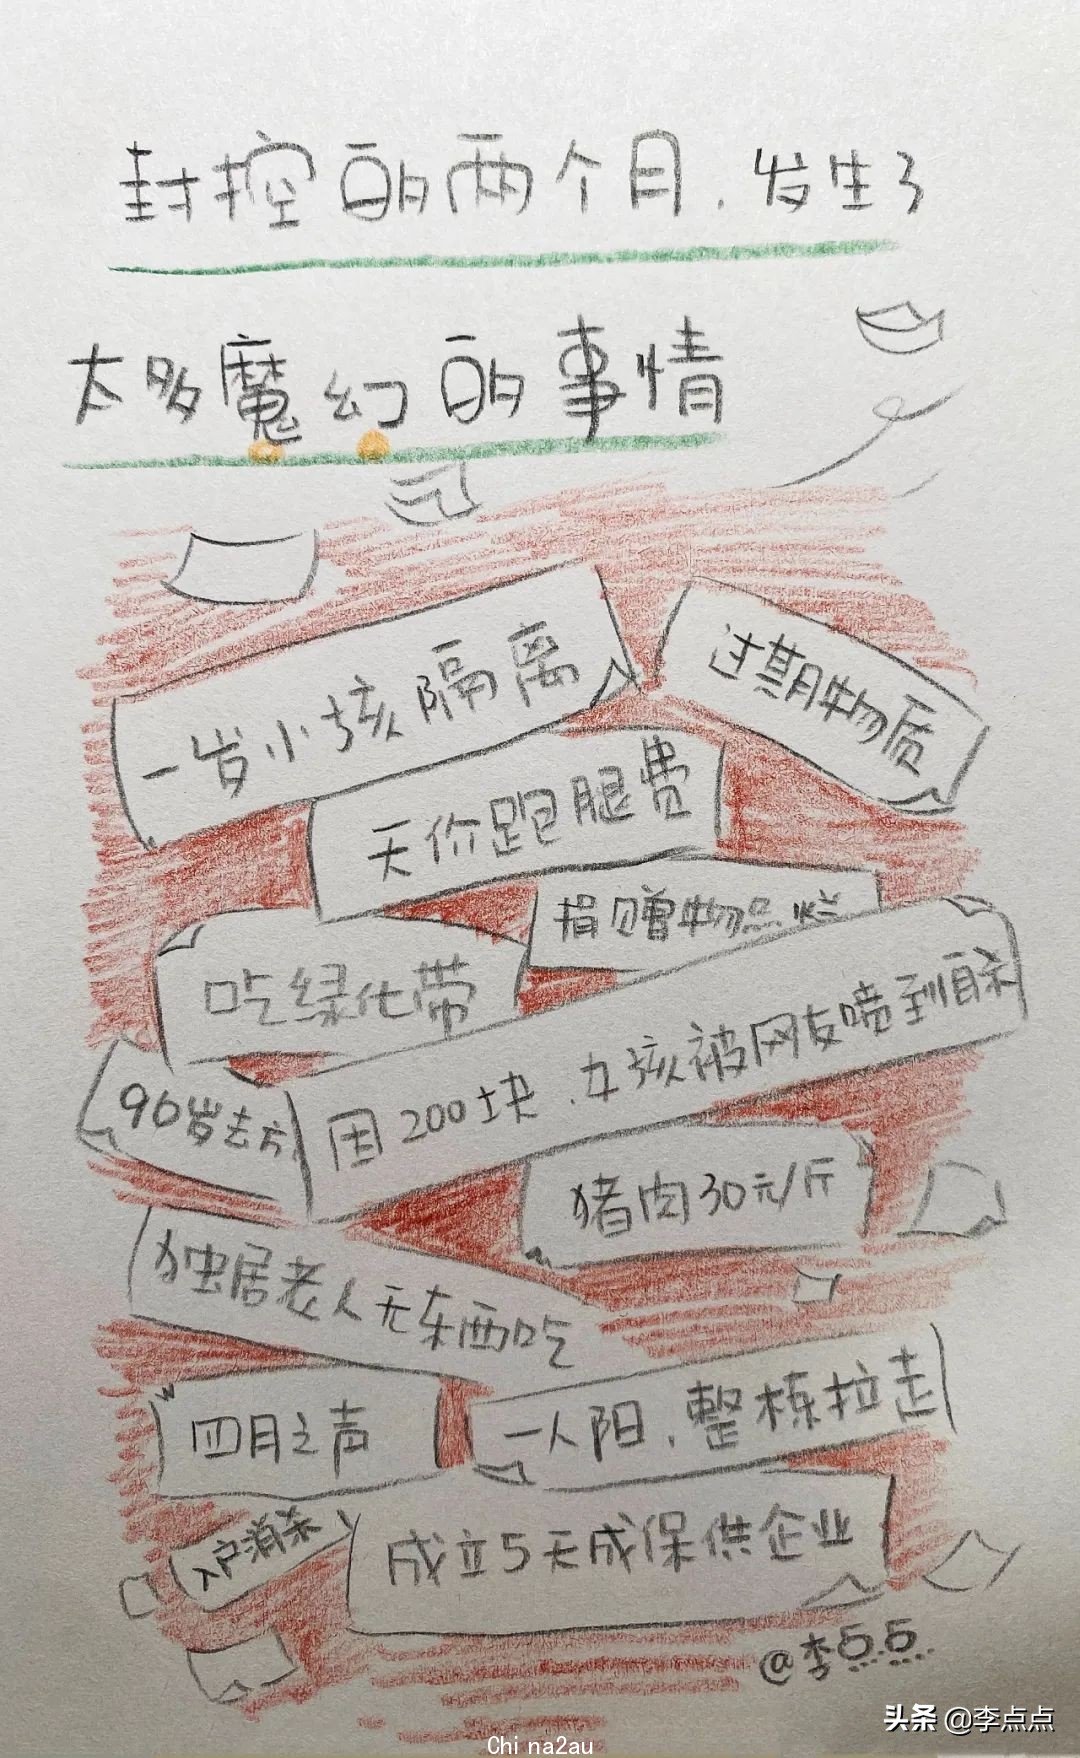 封控的两个月，发生了
太多魔幻的事情
一岁小孩隔离
过期物质
天价跑腿费
捐赠物品烂
吃绿化带
因200块，女孩被网友喷到自杀
90岁去方
猪肉30元/斤
独居老人无东西吃
四月之声
一人阳，整栋拉走
入户消杀
成立5天成保供企业
@李点点
头条 @李点点
China2au